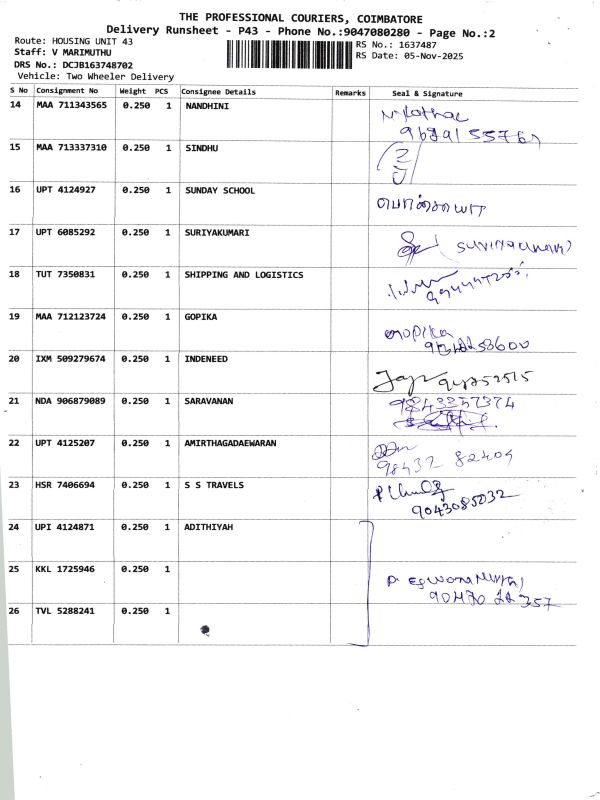 THE PROFESSIONAL COURIERS, COIMBATORE
Delivery Runsheet - P43 - Phone No.:9047080280 - Page No.:2
Route: HOUSING UNIT 43
RS No.: 1637487
Staff: V MARIMUTHU
RS Date: 05-Nov-2025
DRS No.: DCJB163748702
Vehicle: Two Wheeler Delivery
S No Consignment No Weight PCS Consignee Details Remarks Seal & Signature
14 MAA 711343565 0.250 1 NANDHINI
15 MAA 713337310 0.250 1 SINDHU
16 UPT 4124927 0.250 1 SUNDAY SCHOOL
17 UPT 6085292 0.250 1 SURIYAKUMARI
18 TUT 7350831 0.250 1 SHIPPING AND LOGISTICS
19 MAA 712123724 0.250 1 GOPIKA
Gopika
20 IXM 509279674 0.250 1 INDENEED
21 NDA 906879089 0.250 1 SARAVANAN
9843357374
22 UPT 4125207 0.250 1 AMIRTHAGADAEWARAN
98432 82404
23 HSR 7406694 0.250 1 S S TRAVELS
9043085032
24 UPI 4124871 0.250 1 ADITHIYAH
25 KKL 1725946 0.250 1
26 TVL 5288241 0.250 1